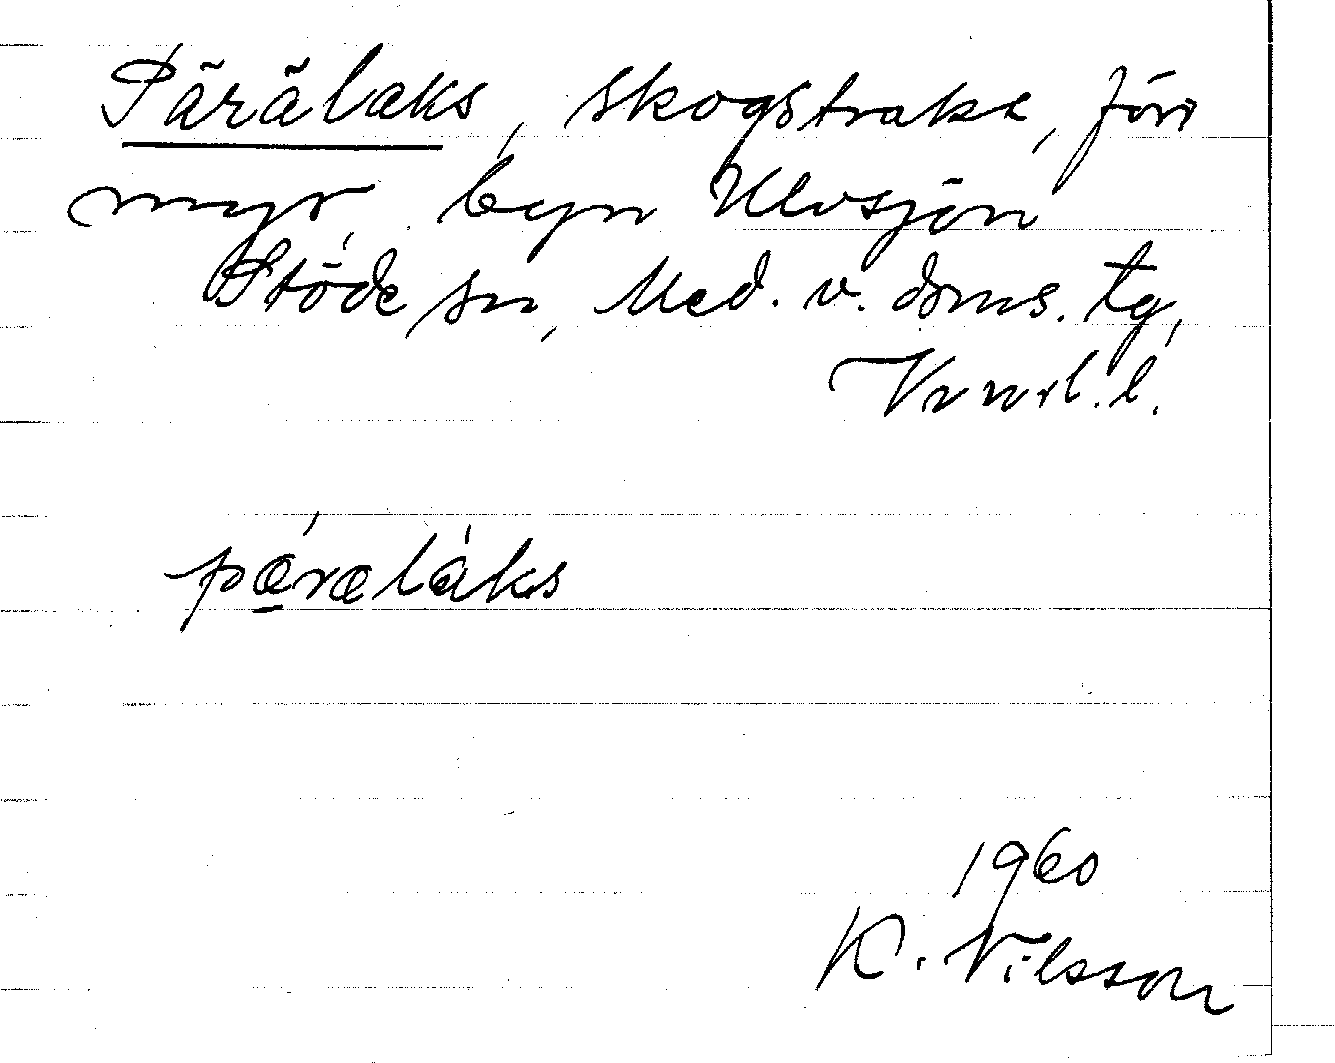 Pärälaks, skogstrakt, förr
myr, byn Ulvsjön
Stöde sn, Med. v. doms. tg,
Vnrl. l.
pǽ̱rælàks
1960
K. Nilsson